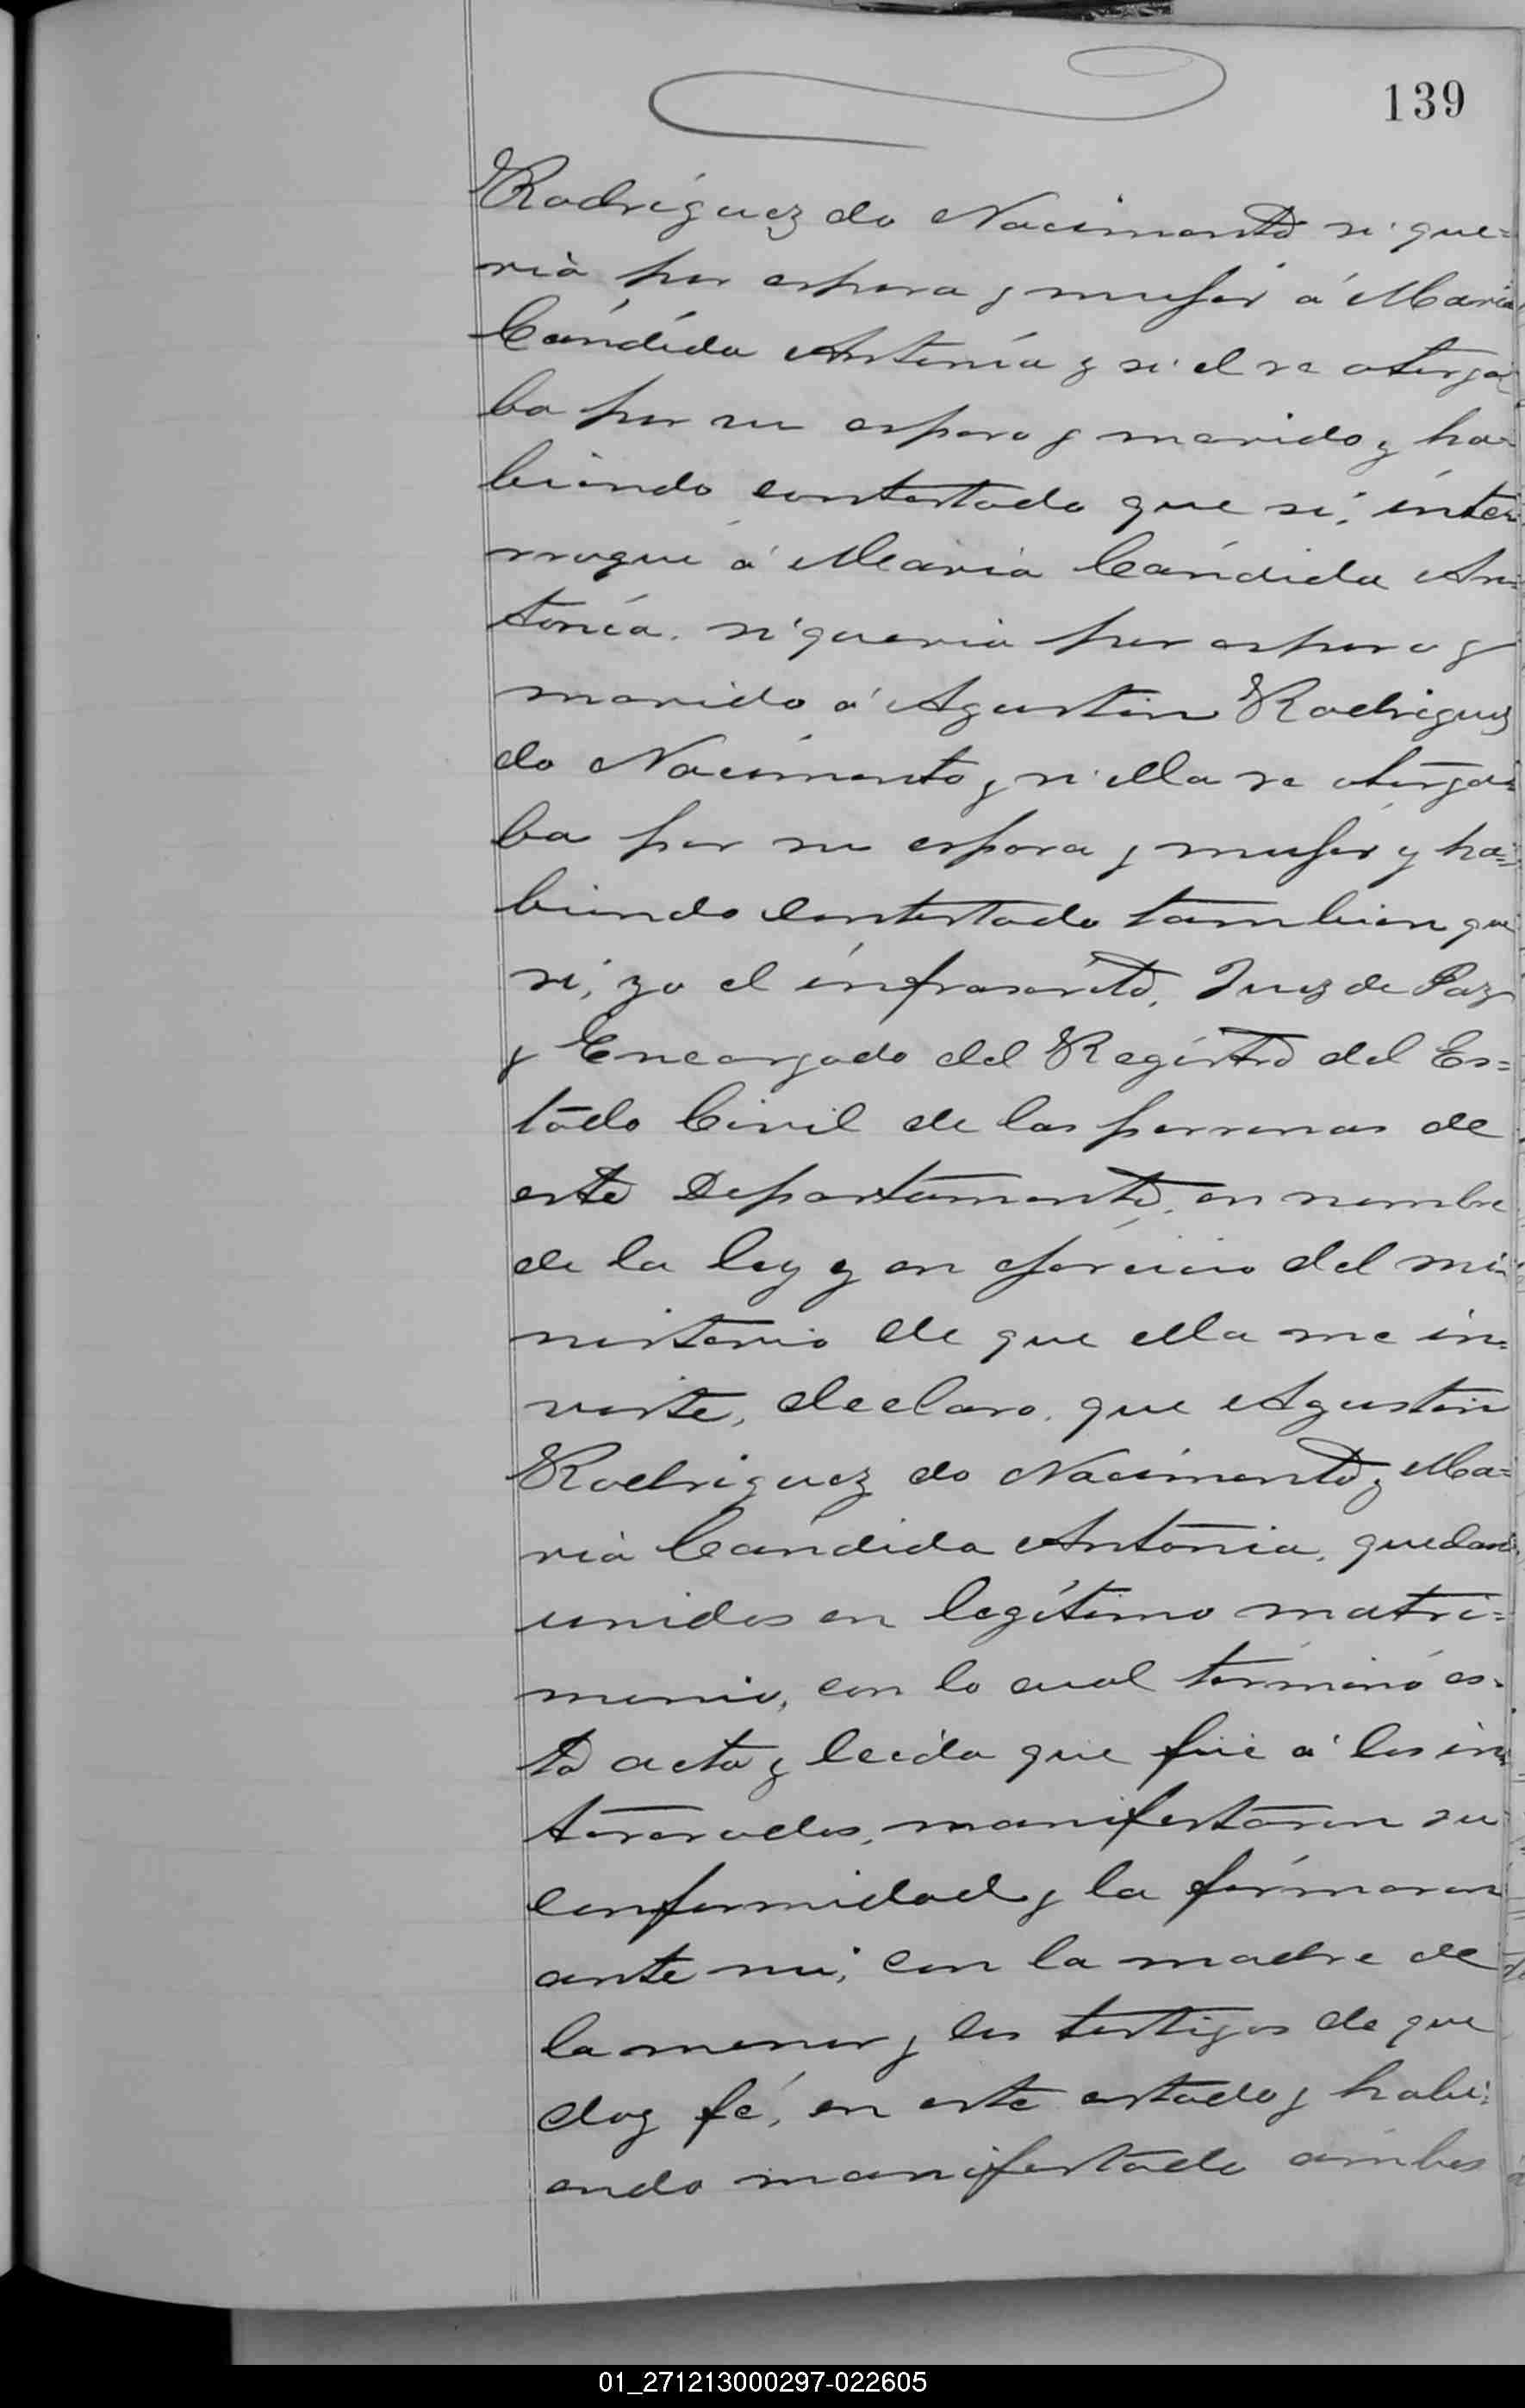 139
Rodríguez do Nacimento si que=
ria por esposa y mujer á Maria
Cándida Antonia y si el se otorga
ba por su esposo y marido y ha-
biendo contestado que si, inter
rogué á Maria Cándida An=
tonia, si queria por esposo y
marido á Agustin Rodriguez
do Nacimento y si ella se otorga=
ba por su esposa y mujer y ha=
biendo contestado tambien que
si, yo el infrascrito, Juez de Paz
y Encargado del Registro del Es=
tado Civil de las personas de
este Departamento, en nombre
de la ley y en ejercicio del mi-
nisterio de que ella me in=
viste, declaro, que Agustin
Rodriguez do Nacimento y Ma=
ria Cándida Antonia, quedan
unidos en legítimo matri=
monio, con lo cual terminó es-
ta acta y leída que fué á los in
teresados, manifestaron su
conformidad y la firmaron
ante mi, con la madre de
la menor y los testigos de que
doy fé, en este estado y habi-
endo manifestado ambos
01_271213000297-022605